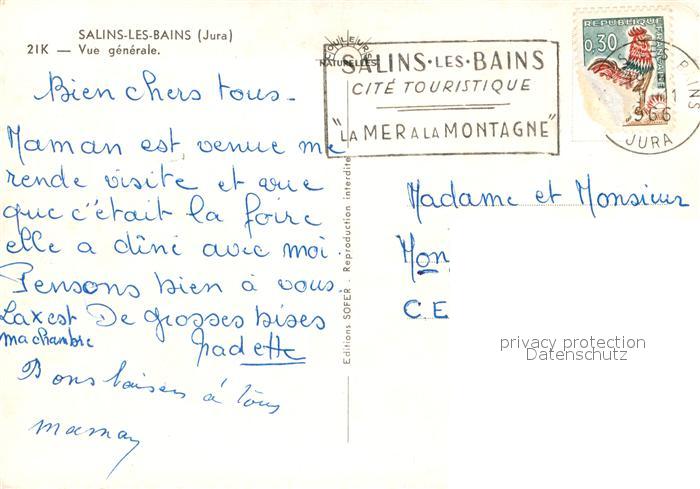 SALINS-LES-BAINS (Jura)
21K — Vue générale.
COULEURS
NATURELLES
SALINS·LES·BAINS
CITÉ TOURISTIQUE
"LA MER A LA MONTAGNE"
REPUBLIQUE
FRANÇAISE
0,30
966
JURA
Bien chers tous.
Maman est venue me
rende visite et vue
que c'était la foire
elle a dîné avec moi.
Pensons bien à vous.
La x est De grosses bises
ma chambre
Nadette
Bons baisers à tous
maman
Editions SOFER - Reproduction interdite
Madame et Monsieur
Mon
C.E
privacy protection
Datenschutz